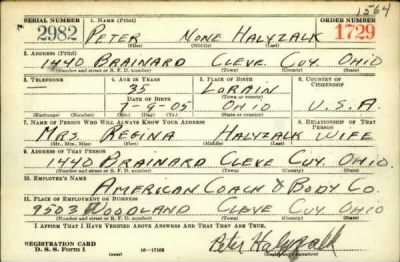 1564
SERIAL NUMBER 1. NAME (Print) ORDER NUMBER
2982 PETER NONE HALYZALK 1729
(First) (Middle) (Last)
2. ADDRESS (Print)
1440 BRAINARD CLEVE CUY. OHIO
(Number and street or R. F. D. number) (Town) (County) (State)
3. TELEPHONE 4. AGE IN YEARS 5. PLACE OF BIRTH 6. COUNTRY OF CITIZENSHIP
— 35 LORAIN
DATE OF BIRTH (Town or county)
7-9-05 OHIO U.S.A.
(Exchange) (Number) (Mo.) (Day) (Yr.) (State or country)
7. NAME OF PERSON WHO WILL ALWAYS KNOW YOUR ADDRESS 8. RELATIONSHIP OF THAT PERSON
MRS. REGINA HALYZALK WIFE
(Mr., Mrs., Miss) (First) (Middle) (Last)
9. ADDRESS OF THAT PERSON
1440 BRAINARD CLEVE CUY. OHIO.
(Number and street or R. F. D. number) (Town) (County) (State)
10. EMPLOYER'S NAME
AMERICAN COACH & BODY CO.
11. PLACE OF EMPLOYMENT OR BUSINESS
9503 WOODLAND CLEVE CUY OHIO
(Number and street or R. F. D. number) (Town) (County) (State)
I AFFIRM THAT I HAVE VERIFIED ABOVE ANSWERS AND THAT THEY ARE TRUE.
REGISTRATION CARD
D. S. S. Form 1 (over) 16—17105 Peter Halyzalk
(Registrant's signature)